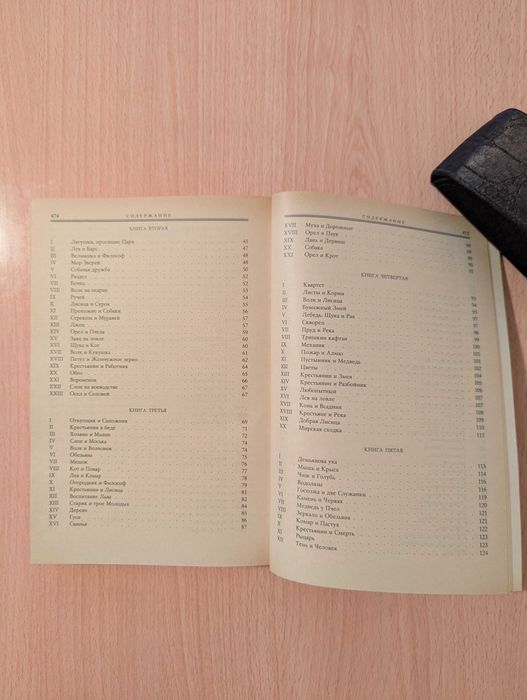 474 СОДЕРЖАНИЕ
КНИГА ВТОРАЯ
I Лягушки, просящие Царя 45
II Лев и Барс 47
III Вельможа и Философ 48
IV Мор Зверей 48
V Собачья дружба 50
VI Раздел 52
VII Бочка 52
VIII Волк на псарне 53
IX Ручей 54
X Лисица и Сурок 55
XI Прохожие и Собаки 56
XII Стрекоза и Муравей 57
XIII Лжец 57
XIV Орел и Пчела 59
XV Заяц на ловле 60
XVI Щука и Кот 60
XVII Волк и Кукушка 61
XVIII Петух и Жемчужное зерно 63
XIX Крестьянин и Работник 64
XX Обоз 65
XXI Вороненок 66
XXII Слон на воеводстве 67
XXIII Осел и Соловей 67
КНИГА ТРЕТЬЯ
I Откупщик и Сапожник 69
II Крестьянин в беде 71
III Хозяин и Мыши 72
IV Слон и Моська 74
V Волк и Волчонок 74
VI Обезьяна 75
VII Мешок 76
VIII Кот и Повар 77
IX Лев и Комар 78
X Огородник и Философ 79
XI Крестьянин и Лисица 81
XII Воспитание Льва 82
XIII Старик и трое Молодых 84
XIV Дерево 85
XV Гуси 86
XVI Свинья 87
СОДЕРЖАНИЕ 475
XVII Муха и Дорожные
XVIII Орел и Паук
XIX Лань и Дервиш
XX Собака
XXI Орел и Крот
КНИГА ЧЕТВЕРТАЯ
I Квартет
II Листы и Корни
III Волк и Лисица
IV Бумажный Змей
V Лебедь, Щука и Рак
VI Скворец
VII Пруд и Река
VIII Тришкин кафтан
IX Механик
X Пожар и Алмаз
XI Пустынник и Медведь
XII Цветы
XIII Крестьянин и Змея
XIV Крестьянин и Разбойник
XV Любопытный
XVI Лев на ловле
XVII Конь и Всадник
XVIII Крестьяне и Река
XIX Добрая Лисица
XX Мирская сходка
КНИГА ПЯТАЯ
I Демьянова уха
II Мышь и Крыса
III Чиж и Голубь
IV Водолазы
V Госпожа и две Служанки
VI Камень и Червяк
VII Медведь у Пчел
VIII Зеркало и Обезьяна
IX Комар и Пастух
X Крестьянин и Смерть
XI Рыцарь
XII Тень и Человек 124